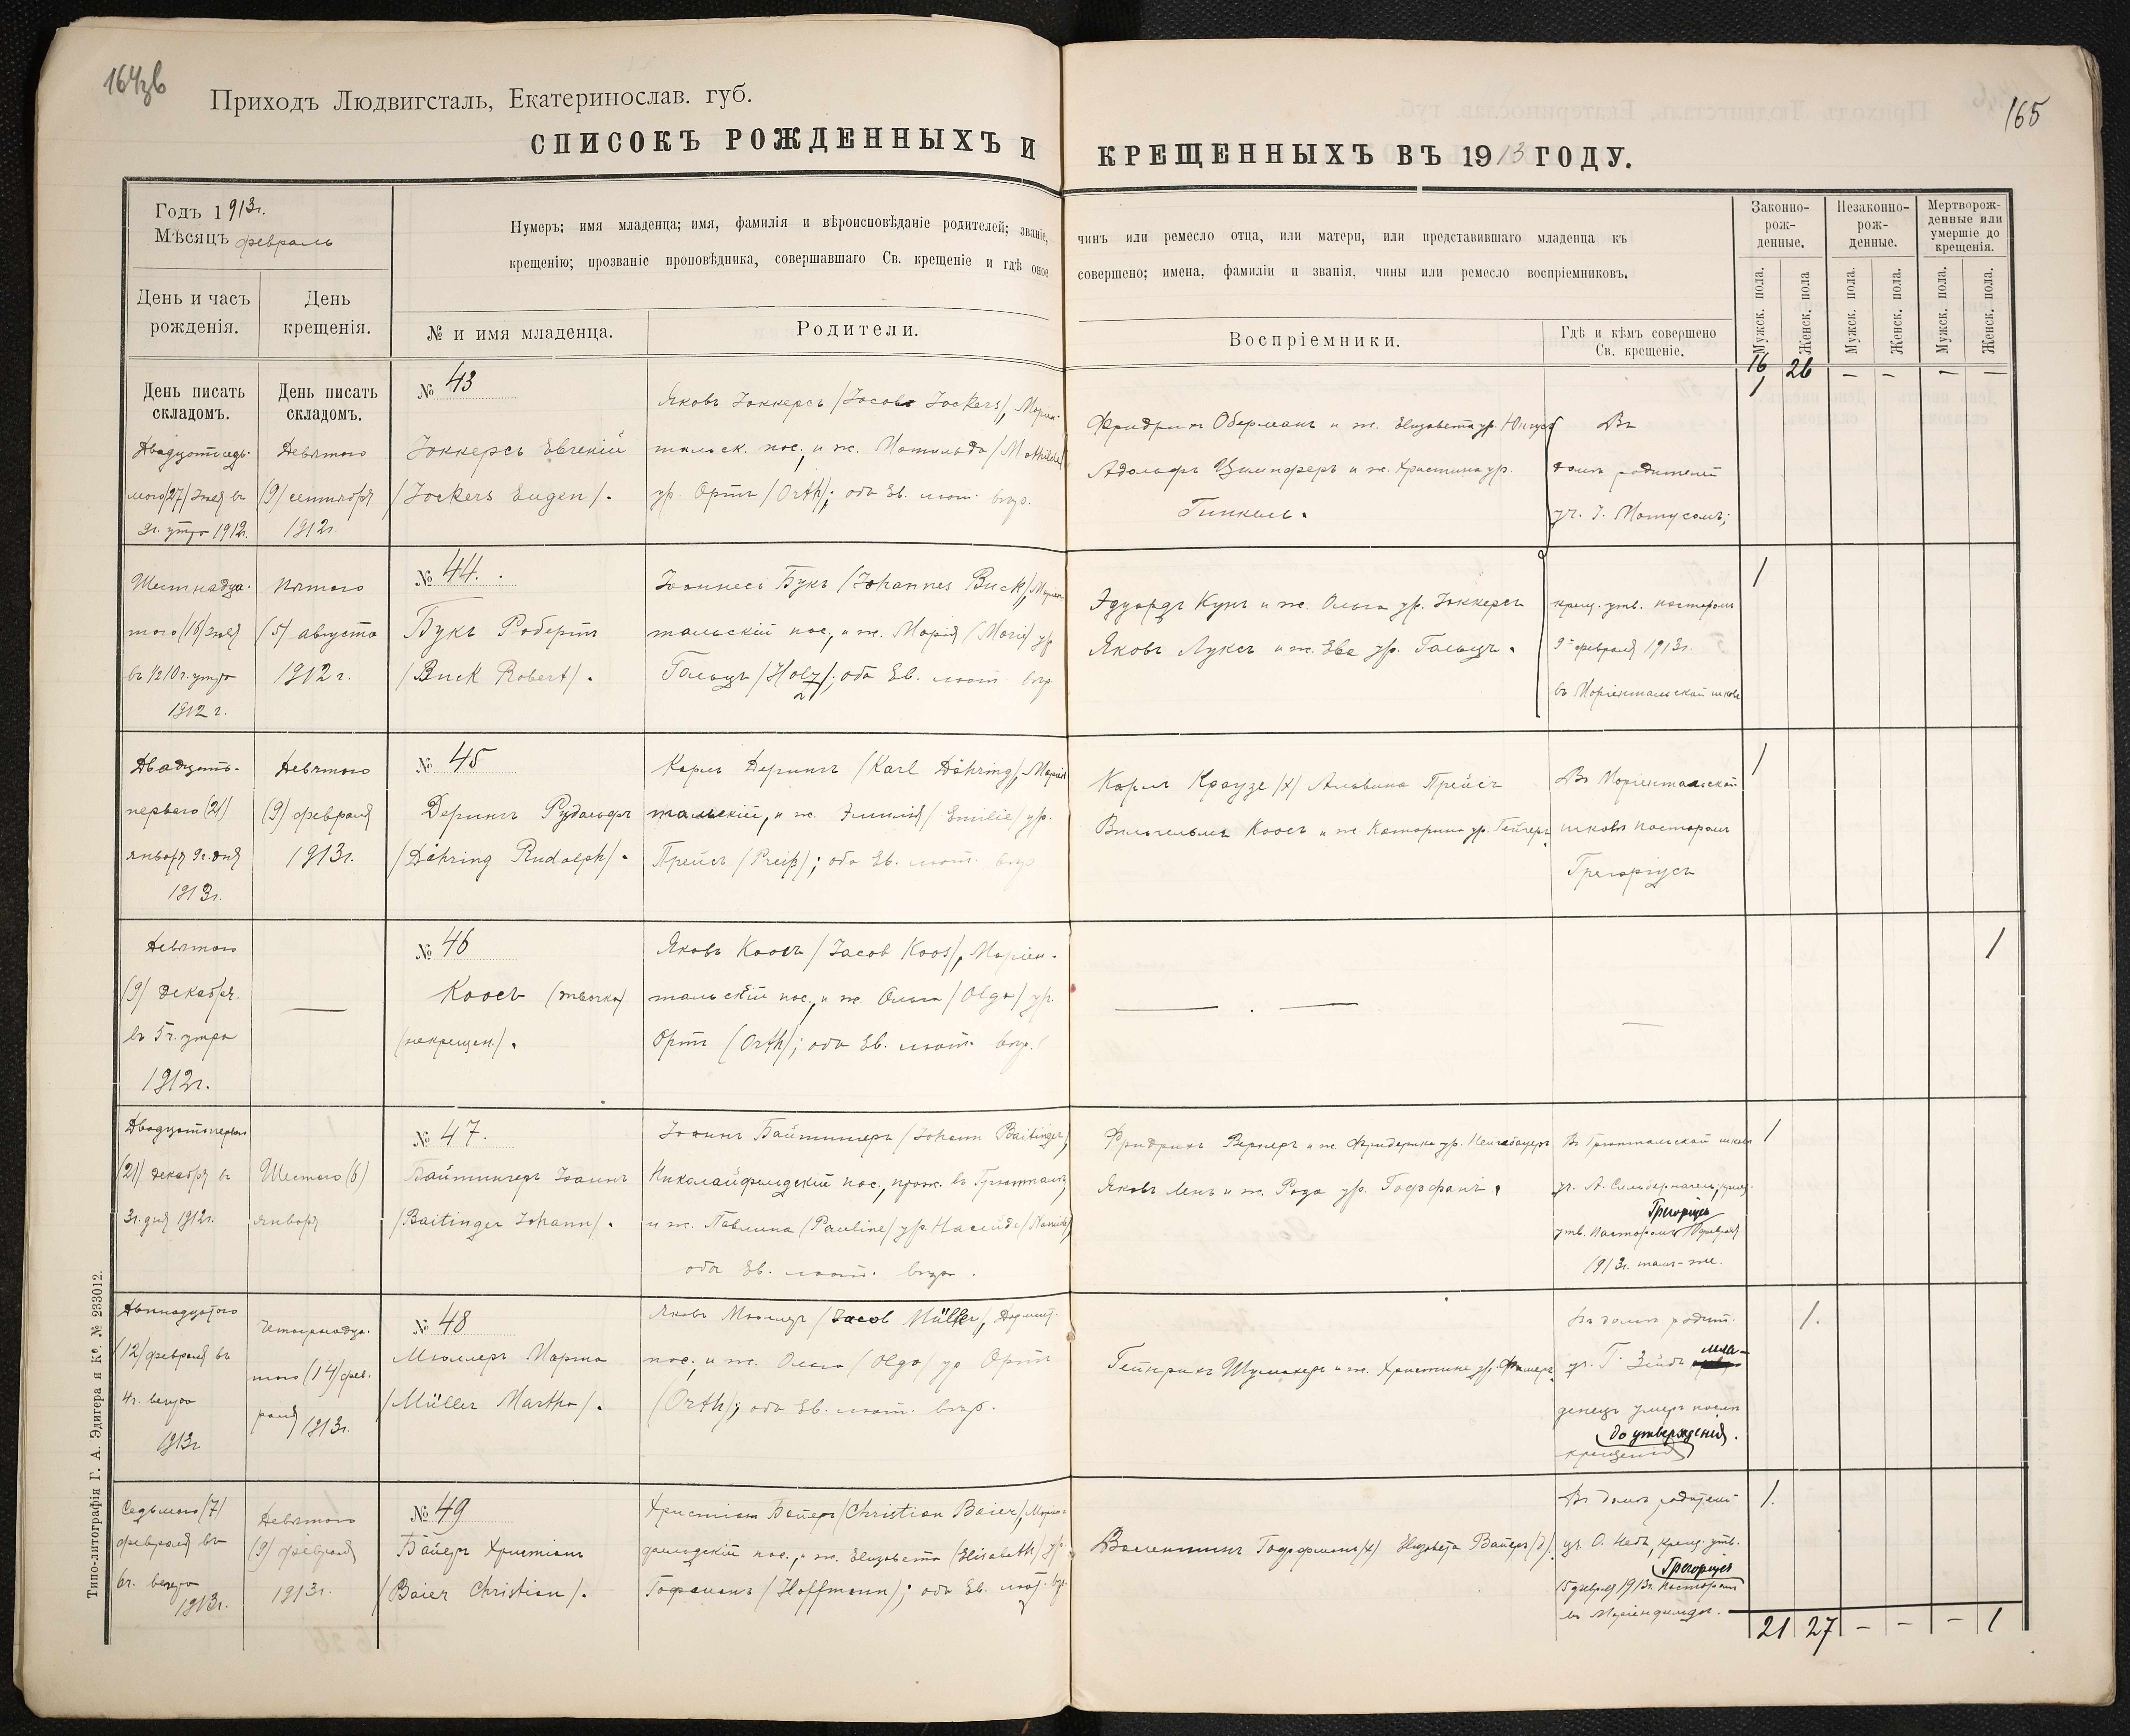 164зв
165
Приходъ Людвигсталь, Екатеринослав. губ.
СПИСОКЪ РОЖДЕННЫХЪ И КРЕЩЕННЫХЪ ВЪ 1913 ГОДУ.
Годъ 1913г.
Мѣсяцъ февраль
День и часъ
рожденія.
День
крещенія.
Нумеръ; имя младенца; имя, фамилія и вѣроисповѣданіе родителей; званіе, чинъ или ремесло отца, или матери, или представившаго младенца къ
крещенію; прозваніе проповѣдника, совершавшаго Св. крещеніе и гдѣ оное совершено; имена, фамиліи и званія, чины или ремесло воспріемниковъ.
№ и имя младенца.
Родители.
Воспріемники.
Гдѣ и кѣмъ совершено
Св. крещеніе.
Законно-
рож-
денные.
Незаконно-
рож-
денные.
Мертворож-
денные или
умершіе до
крещенія.
Мужск. пола.
Женск. пола
Мужск. пола.
Женск. пола.
Мужск. пола.
Женск. пола.
16 26 — — — —
День писать
складомъ.
День писать
складомъ.
(27) въ
9г. утра 1912г.
Девятого
(9) сентября
1912г
№ 43
Іоккерсъ Евгеній
/Jockers Eugen/.
Яковъ Іоккерсъ /Jacob Jockers/, Маріен-
тальск. пос., и ж. Матильда /Mathilde/
ур. Ортъ /Orth/; оба Ев. лют. вѣр.
Фридрихъ Оберманъ и ж. Елизавета ур.
Адольфъ и ж. Христина ур.
Гинкель.
Въ
домѣ родителей
уч. І.
1
Шестнадца-
того (16) въ
½10 г. утра
1912 г.
Пятого
(5) августа
1912 г.
№ 44.
Букъ Робертъ
/Buck Robert/.
Іоаннесъ Букъ /Johannes Buck/, Маріен-
тальскій пос., и ж. Марія /Marie/ ур
Гольцъ /Holz/; оба Ев. лют вѣр
Эдуардъ Кунъ и ж. Ольга ур. Іоккерсъ
Яковъ Луксъ и ж. Ева ур. Гольцъ.
крещ. утв. пасторомъ
9го февраля 1913г.
въ Маріентальской школѣ
1
Двадцать-
перваго (21)
января 9г. дня
1913г.
Девятого
(9) февраля
1913г.
№ 45
Дерингъ Рудольфъ
/Döhring Rudolph/.
Карлъ Дерингъ /Karl Döhring/, Маріен
тальскій, и ж. Эмилія /Emilie/ ур.
Прейсъ /Preiß/; оба Ев. лют. вѣр
Карлъ Краузе /х/ Альвина Прейсъ
Вильгельмъ Коосъ и ж. Катарина ур. Гейгеръ.
Въ Маріентальской
школѣ пасторомъ
Грегоріусъ
1
Девятого
(9) декабря.
въ 5 г. утра
1912г.
—
№ 46
Коосъ (дѣвочка)
(некрещен.).
Яковъ Коосъ /Jacob Koos/, Маріен-
тальскій пос., и ж Ольга /Olga/ ур.
Ортъ (Orth); оба Ев. лют. вѣр.
— . —
—
1
(21) декабря въ
3г. дня 1912г.
Шестого (6)
января
№ 47.
Байтингеръ Іоаннъ
/Baitinger Johann/.
Іоаннъ Байтингеръ /Johann Baitinger/,
Николайфельдскій пос., прож. въ Грюнталѣ,
и ж. Павлина /Pauline/ ур.
оба Ев. лют. вѣр.
Фридрихъ Вернеръ и ж. Фридерика ур.
Яковъ Ленъ и ж. Роза ур. Гоффманъ.
Въ Грюнтальской школѣ
уч. А. крещ.
Грегоріусъ
утв. пасторомъ февраля
1913г. тамъ-же.
1
Двенадцатого
(12) февраля въ
4г. вечера
1913г
Четырнадца-
того (14) фев-
раля 1913г.
№ 48
Мюллеръ Марта
/Müller Martha/.
Яковъ Мюллеръ /Jacob Müller/,
пос. и ж. Ольга /Olga/ ур Ортъ
(Orth); оба Ев. лют. вѣр.
Гейнрихъ Шумахеръ и ж. Христина ур.
Въ домѣ родит.
уч. Г. Зейдъ мла-
денецъ умеръ послѣ
до утвержденія.
крещенія
1.
Седьмого (7)
февраля въ
6г. вечера
1913г.
Девятого
(9) февраля
1913г.
№ 49
Байеръ Христіанъ
/Baier Christian/.
Христіанъ Байеръ /Christian Baier/, Маріен-
фельдскій пос., и ж. Елизавета (Elisabeth) ур.
Гофманъ /Hoffmann/; оба Ев. лют. вѣр.
Валентинъ Гоффманъ /х/ Елизавета Байеръ /д/.
Въ домѣ родителей
уч. О. крещ. утв.
Грегоріусъ
15 февраля 1913г. пасторомъ
въ Маріенфельдѣ.
1.
21 27 — — — 1
Типо-литографія Г. А. Эдигера и Ко. № 233012.